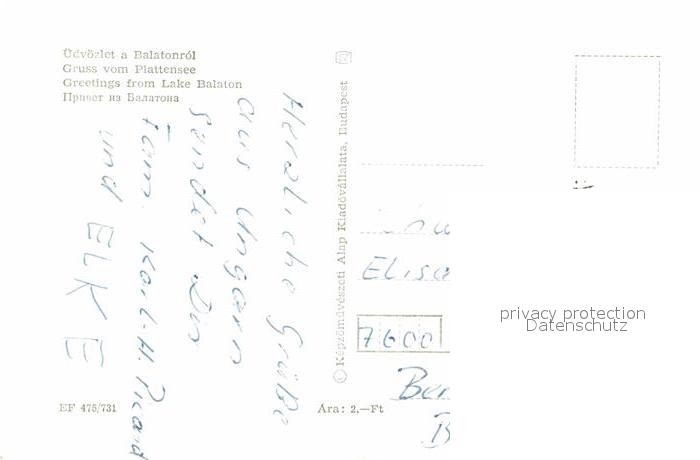 Üdvözlet a Balatonról
Gruss vom Plattensee
Greetings from Lake Balaton
Привет из Балатона
Herzliche Grüße
aus Ungarn
sendet Dir
Fam. Karl-H. Picard
und ELKE
EF 475/731
Ára: 2,—Ft
© Képzőművészeti Alap Kiadóvállalata, Budapest
Elisa
7600
Ber
B
privacy protection
Datenschutz